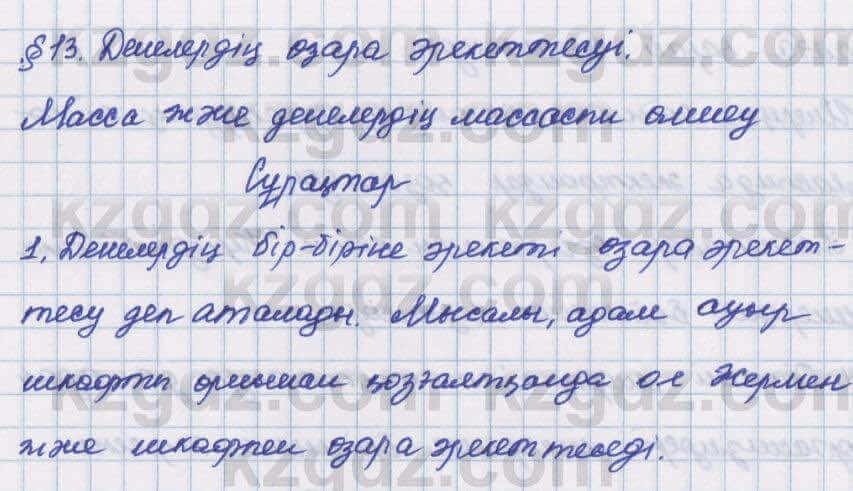 §13. Денелердің өзара әрекеттесуі.
Масса және денелердің массасын өлшеу
Сұрақтар
1. Денелердің бір-біріне әрекеті өзара әрекет-
тесу деп аталады. Мысалы, адам ауыр
шкафты орнынан қозғалтқанда ол Жермен
және шкафпен өзара әрекеттеседі.
kzgdz.com